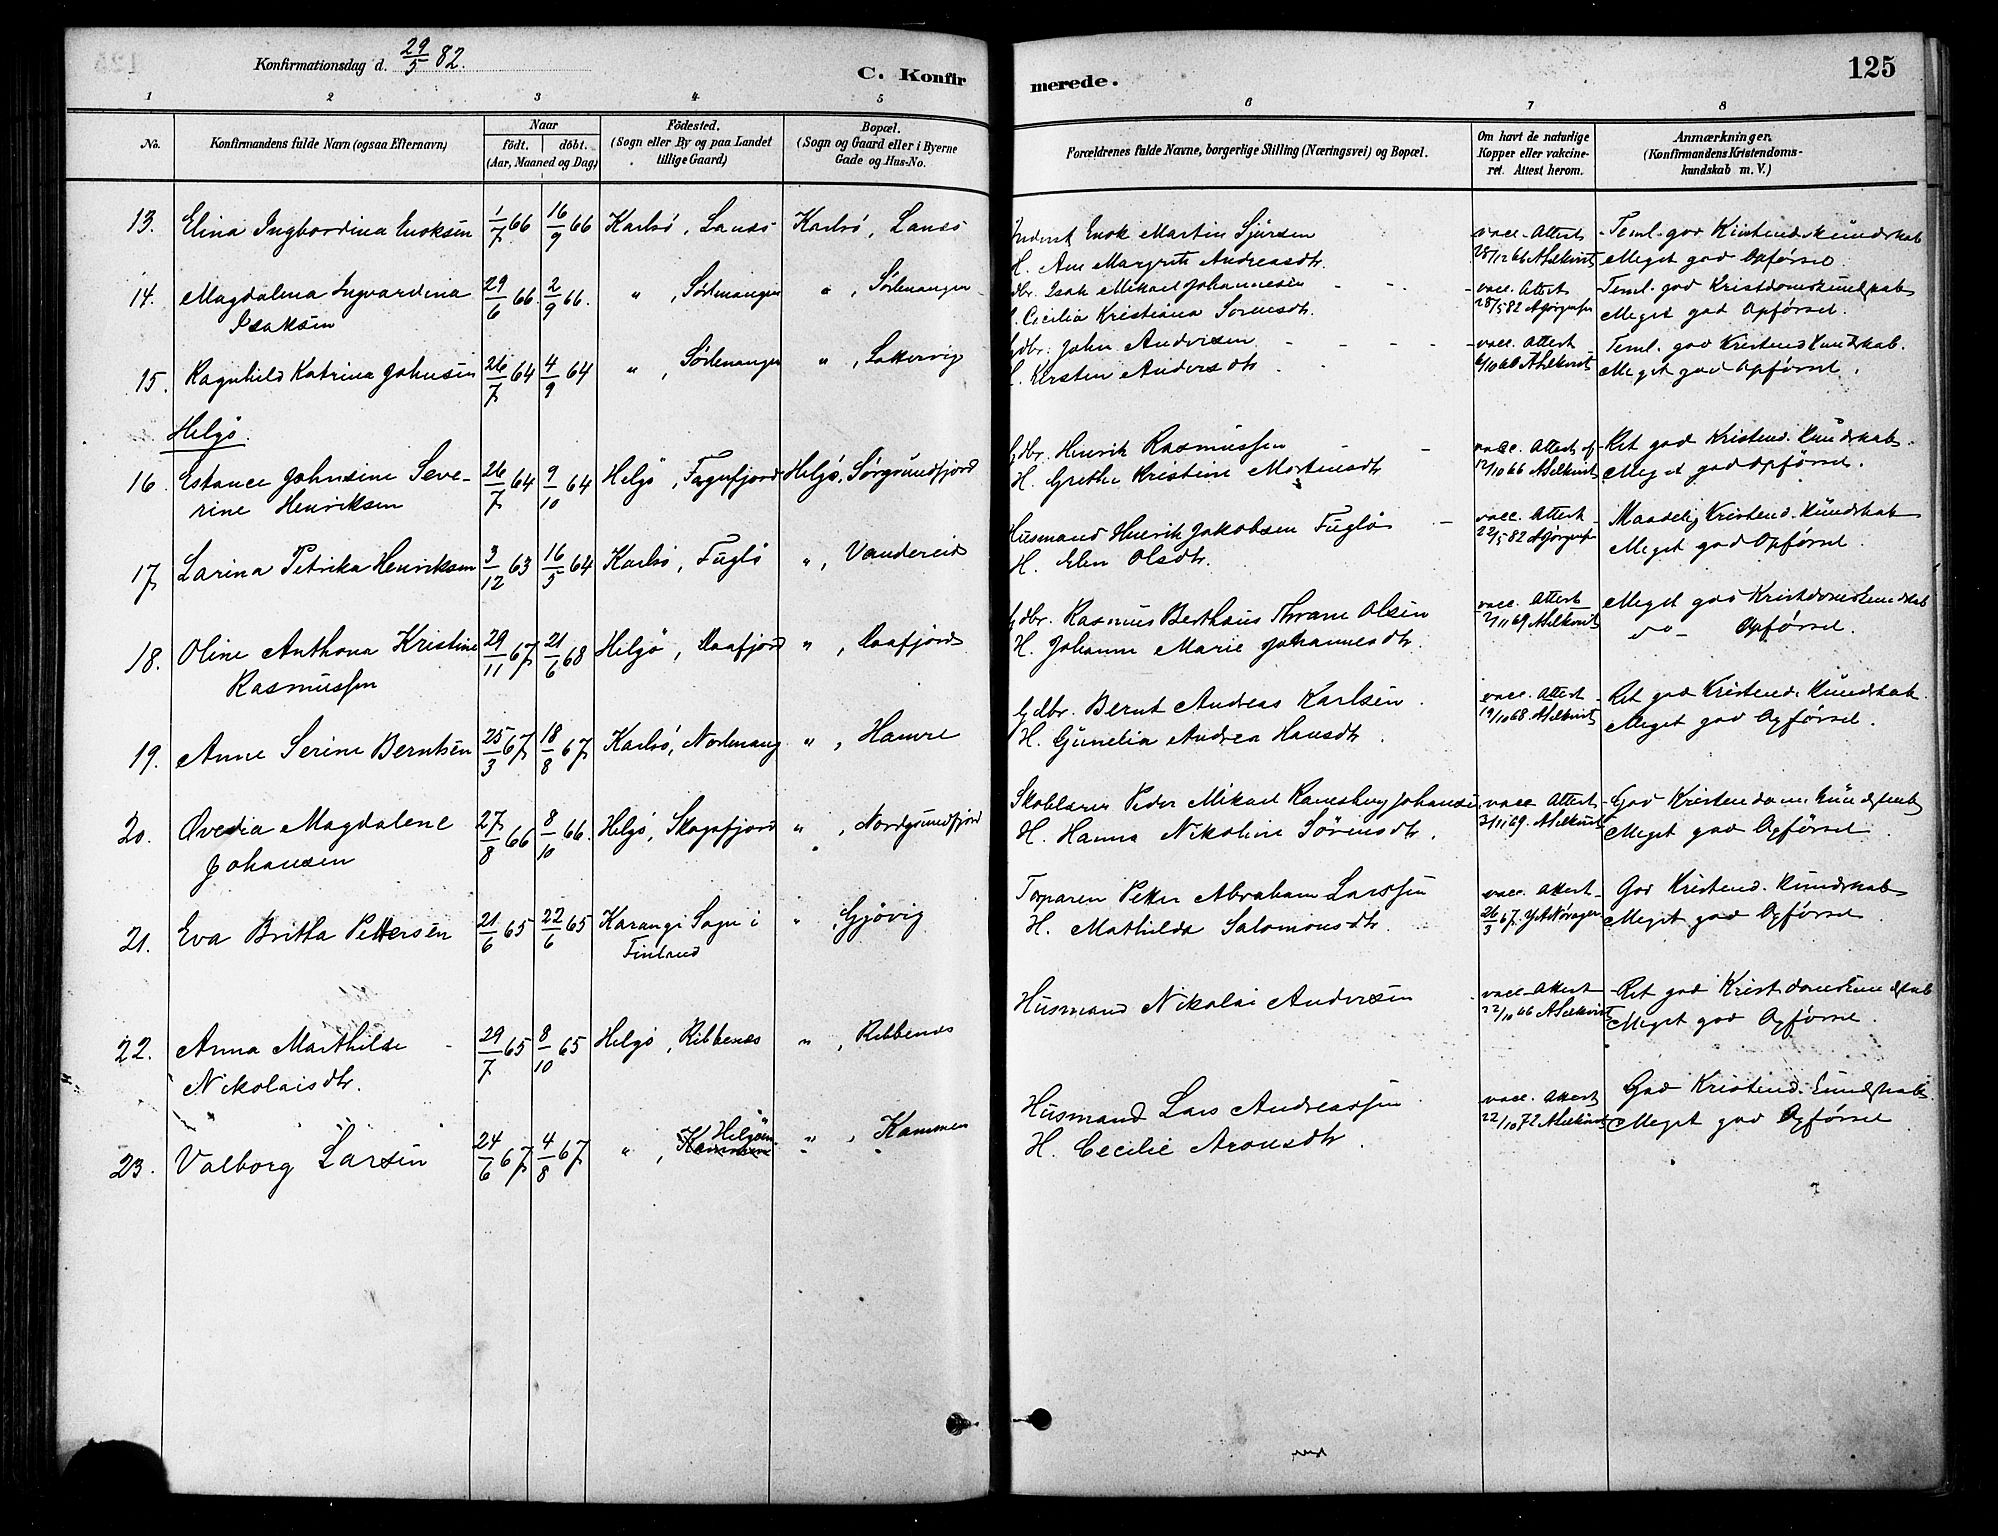 Konfirmationsdag d. 29/5 82.
C. Konfirmerede.
125
1 2 3 4 5 6 7 8
No.
Konfirmandens fulde Navn (ogsaa Efternavn)
Naar
födt. döbt.
(Aar, Maaned og Dag)
Födested.
(Sogn eller By og paa Landet
tillige Gaard)
Bopæl.
(Sogn og Gaard eller i Byerne
Gade og Hus-No.
Forældrenes fulde Navne, borgerlige Stilling (Næringsvei) og Bopæl.
Om havt de naturlige
Kopper eller vakcine-
ret. Attest herom.
Anmærkninger.
(Konfirmandens Kristendoms-
kundskab m. V.)
13. Elina Ingbordina Enoksen 1/7 66 16/9 66 Karlsö, Lansö Karlsö, Lansö Enok Martin Sjursen vacc. Attest Teml. god Kristend. kundskab
H. Ane Margrete Andreasdtr. 28/12 66 Meget god Opförsel.
14. Magdalena Ingvardina 29/6 66 2/9 66. " , Sörlenangen " , Sörlenangen Isak Mikael Johannesen vacc. Attest Teml. god Kristdomskundskab
Isaksen Cecilia Kristiana Sörensdtr. 28/5 82 Meget god Opförsel.
15. Ragnhild Katrina Johnsen 26/7 64 4/9 64 " , Sörlenangen " , Lattervig Gdbr. John Andersen vacc. Attest Teml. god Kristend kundskab.
Kirsten Andersdtr Meget god Opförsel.
Helgö.
16. Estance Johnsine Seve- 26/7 64 9/10 64 Helgö, Fagerfjord Helgö, Sörgrundfjord Gdbr. Henrik Rasmussen vacc. Attest af Ret god Kristend. kundskab.
rine Henriksen H. Grethe Kristine Mortensdtr 12/10 66 Meget god Opförsel.
17. Larina Petrika Henriksen 3/12 63 16/5 64 Karlsö, Fuglö " , Vandereid Husmand Henrik Jakobsen Fuglö vacc. Attest Maadelig Kristend. kundskab
H. Elen Olsdtr. 22/5 82 Meget god Opförsel.
18. Oline Anthona Kristine 29/11 67 21/6 68 Helgö, Daafjord " , Daafjord Gdbr. Rasmus Berthæus Thrane Olsen vacc. Attest Meget god Kristdomskundskab
Rasmussen H. Johanne Marie Johannesdtr. 2/11 69 do - Opförsel.
19. Anne Serine Berntsen 25/3 67 18/8 67 Karlsö, Nordnang " , Hamre Gdbr. Bernt Andreas Karlsen vacc. Attest Ret god Kristend. kundskab.
H. Gunelia Andrea Hansdtr 19/10 68 Meget god Opförsel.
20. Ovedia Magdalene 27/8 66 8/10 66. Helgö, Skogsfjord " , Nordgrundfjord Skolelærer Peder Mikael Johansen vacc Attest God Kristendoms kundskab
Johansen H. Hanna Nikoline Sörensdtr. 3/11 69. Meget god Opförsel
21. Eva Britha Pettersen 21/6 65 22/6 65 Karungi Sogn i " , Gjövig Torparen Petter Abraham Larssen vacc. Attest God Kristend. kundskab
Finland H. Mathilda Salomonsdtr. 26/3 67. Meget god Opförsel
22. Anna Marthilde 29/7 65 8/10 65 Helgö, Ribbenes " , Ribbenes Husmand Nikolai Andersen vacc. Attest Ret god Kristdomskundskab
Nikolaisdtr. 22/10 66 Meget god Opförsel.
23. Valborg Larsen 24/6 67 4/8 67 " , Helgöen " , Kammen Husmand Lars Andreassen vacc. Attest God Kristend. kundskab
H. Cecilie Aronsdtr. 22/10 72 Meget god Opförsel